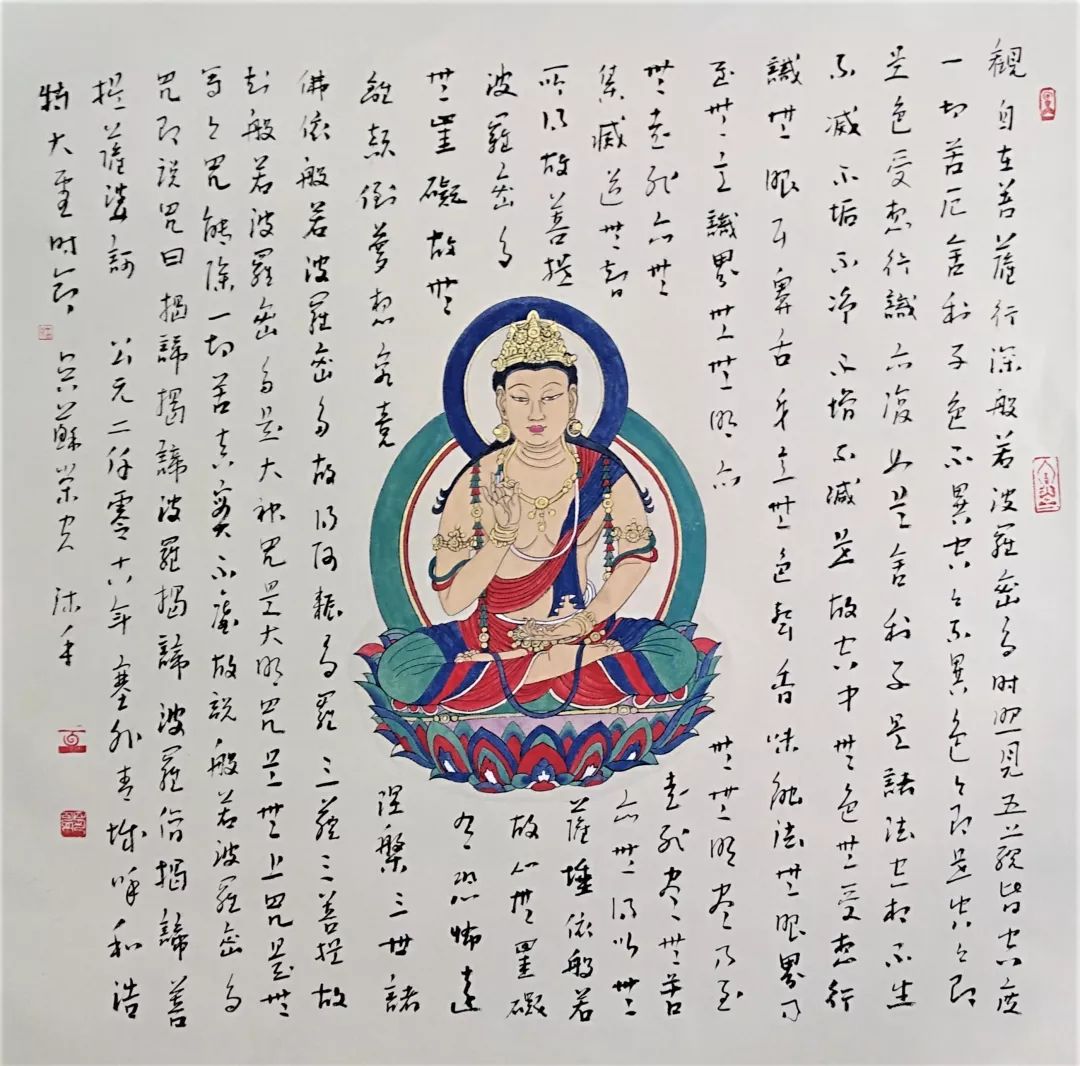 觀自在菩薩行深般若波羅密多时照見五蕴皆空度
一切苦厄舍利子色不異空々不異色々即是空々即
是色受想行識亦復如是舍利子是諸法空相不生
不滅不垢不净不增不減是故空中無色無受想行
識無眼耳鼻舌身意無色聲香味触法無眼界乃
至無意識界無無明亦無無明盡乃至
無老死亦無老死盡無苦
集滅道無智亦無得以無
所得故菩提薩埵依般若
波羅密多故心無罣礙
無罣礙故無有恐怖遠
離顛倒夢想究竟涅槃三世諸
佛依般若波羅密多故得阿耨多羅三藐三菩提故
知般若波羅密多是大神咒是大明咒是無上咒是無
等々咒能除一切苦真實不虚故説般若波羅密多
咒即説咒曰揭諦揭諦波羅揭諦波羅僧揭諦菩
提薩婆訶 公元二仟零十六年塞外青城呼和浩
特大雪时节 蘇荣 沐手